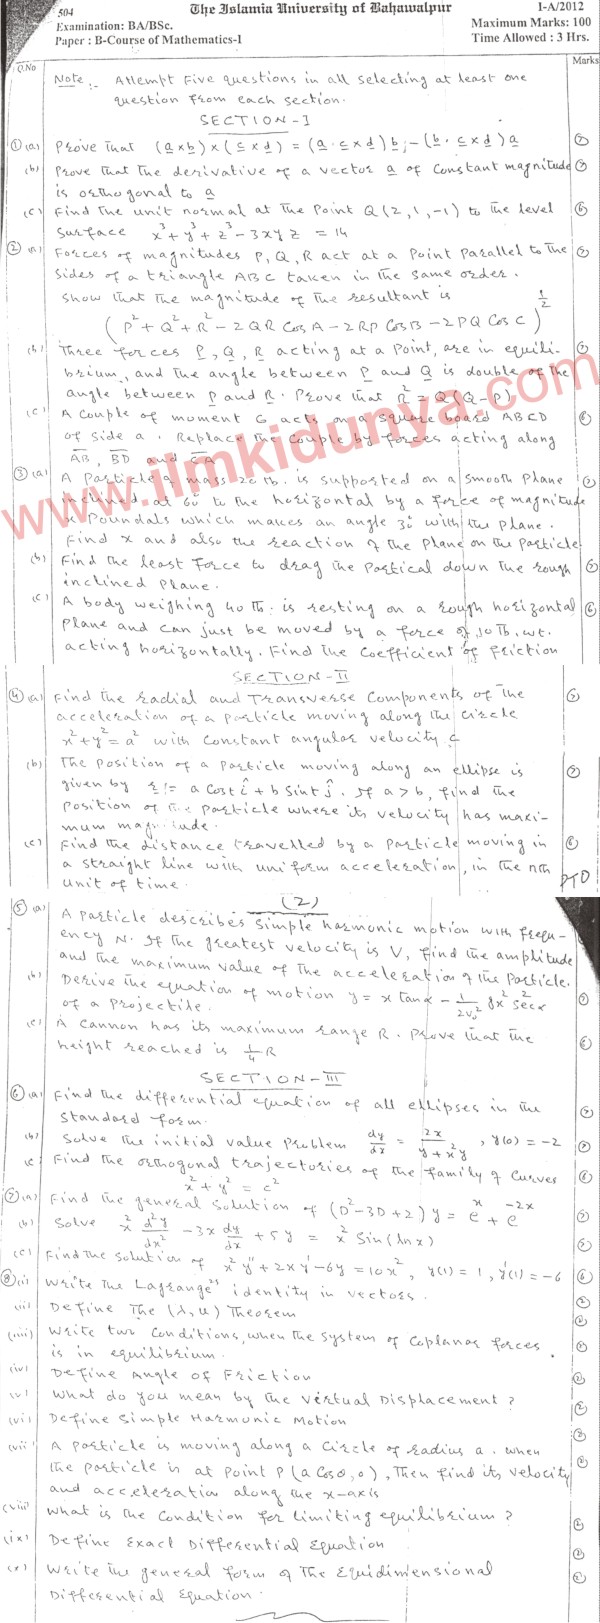 504
The Islamia University of Bahawalpur
I-A/2012
Examination: BA/BSc.
Maximum Marks: 100
Paper : B-Course of Mathematics-I
Time Allowed : 3 Hrs.
Q.No
Marks
Note:- Attempt Five questions in all selecting at least one
question from each section.
SECTION-I
① (a) Prove that (a×b)×(c×d) = (a·c×d)b - (b·c×d)a ⑦
(b) Prove that the derivative of a vector a of Constant magnitude ⑦
is orthogonal to a
(c) Find the unit normal at the Point Q(2,1,-1) to the level ⑥
Surface x³+y³+z³-3xyz = 14
② (a) Forces of magnitudes P, Q, R act at a Point Parallel to the ⑦
Sides of a triangle ABC taken in the same order.
Show that the magnitude of the resultant is
(P²+Q²+R²-2QR CosA-2RP CosB-2PQ CosC)^½
(b) Three forces P, Q, R acting at a Point, are in equili- ⑦
brium, and the angle between P and Q is double of the
angle between P and R. Prove that R²=Q(Q-P)
(c) A Couple of moment G acts on a square board ABCD ⑥
of side a. Replace the Couple by forces acting along
AB, BD and CA
③ (a) A Particle of mass 20 lb. is supported on a smooth Plane ⑦
inclined at 60° to the horizontal by a force of magnitude
x Poundals which makes an angle 30° with the Plane.
Find x and also the reaction of the Plane on the Particle
(b) Find the least force to drag the Partical down the rough ⑦
inclined Plane.
(c) A body weighing 40 lb. is resting on a rough horizontal ⑥
Plane and can just be moved by a force of 10 lb. wt.
acting horizontally. Find the Coefficient of friction
SECTION-II
④ (a) Find the radial and Transverse Components of the ⑦
acceleration of a particle moving along the circle
x²+y²=a² with Constant angular velocity c
(b) The Position of a Particle moving along an ellipse is ⑦
given by r = a Cost i + b Sint j. If a>b, find the
Position of the Particle where its velocity has maxi-
mum magnitude.
(c) Find the distance travelled by a Particle moving in ⑥
a straight line with uniform acceleration, in the nth
unit of time.
PTO
(2)
⑤ (a) A Particle describes Simple harmonic motion with frequ-
ency N. If the greatest velocity is V, find the amplitude
and the maximum value of the acceleration of the Particle.
(b) Derive the equation of motion y = x tanα - 1/2v₀² gx² Sec²α ⑦
of a Projectile.
(c) A Cannon has its maximum range R. Prove that the ⑥
height reached is ¼R
SECTION-III
⑥ (a) Find the differential equation of all ellipses in the ⑦
Standard form.
(b) Solve the initial value Problem dy/dx = 2x/y+x²y, y(0) = -2 ⑦
(c) Find the orthogonal trajectories of the family of Curves ⑥
x²+y² = c²
⑦ (a) Find the general Solution of (D²-3D+2)y = eˣ+e⁻²ˣ ⑦
(b) Solve x² d²y/dx² - 3x dy/dx + 5y = x² Sin(lnx) ⑦
(c) Find the Solution of x²y''+2xy'-6y=10x², y(1)=1, y'(1)=-6 ⑥
⑧ (i) Write the Lagrange's identity in vectors. ②
(ii) Define The (λ,u) Theorem ②
(iii) Write two Conditions, when the System of Coplanar forces ②
is in equilibrium.
(iv) Define Angle of Friction ②
(v) What do you mean by the Virtual Displacement ? ②
(vi) Define Simple Harmonic Motion ②
(vii) A Particle is moving along a Circle of radius a. When ②
the Particle is at Point P(a Cosθ,0), Then find its velocity
and acceleration along the x-axis
(viii) What is the Condition for limiting equilibrium ? ②
(ix) Define Exact Differential Equation ②
(x) Write the general form of The Equidimensional ②
Differential Equation.
www.ilmkidunya.com